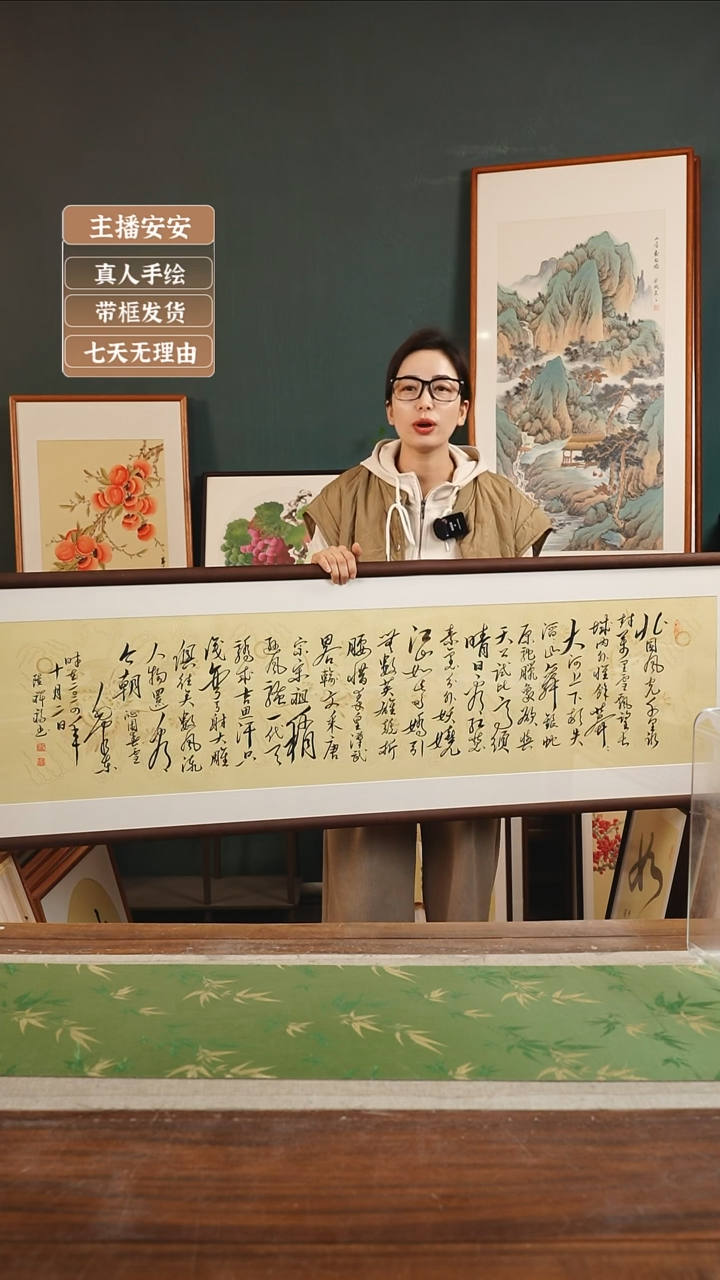 主播安安
真人手绘
带框发货
七天无理由
北国风光千里冰
封万里雪飘望长
城内外惟馀莽莽
大河上下顿失
滔滔山舞银蛇
原驰臘象欲与
天公试比高须
晴日看红装
素裹分外妖娆
江山如此多娇引
无数英雄竞折
腰惜秦皇汉武
略输文采唐
宗宋祖稍
逊风骚一代天
骄成吉思汗只
识弯弓射大雕
俱往矣数风流
人物还看
今朝 沁园春雪
毛泽东
十月一日